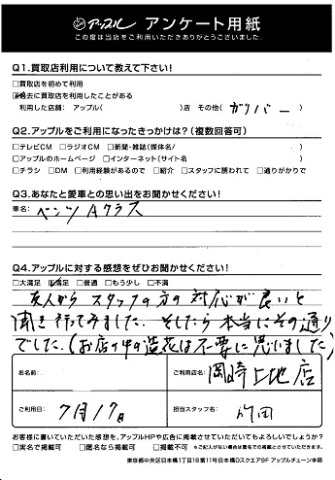 アップル アンケート用紙
この度は当店をご利用いただきありがとうございました。
Q1.買取店利用について教えて下さい!
□買取店を初めて利用
☑過去に買取店を利用したことがある
利用した店舗: アップル( )店 その他( ガリバー )
Q2.アップルをご利用になったきっかけは?(複数回答可)
□テレビCM □ラジオCM □新聞・雑誌(媒体名/ )
□アップルのホームページ □インターネット(サイト名 )
□チラシ □DM □利用経験があるので □紹介 □スタッフに誘われて □通りがかりで
Q3.あなたと愛車との思い出をお聞かせください!
車名: ベンツ Aクラス
Q4.アップルに対する感想をぜひお聞かせください!
□大満足 ☑満足 □普通 □もう少し □不満
友人から スタッフの方の対応が良いと
聞き行ってみました。そしたら本当にその通り
でした。(お店の中の造花は不要に思いました)
お名前: ご利用店名: 岡崎上地店
ご利用日: 7月17日 担当スタッフ名: 竹田
お客様に書いていただいた感想を、アップルHPや広告に掲載させていただいてもよろしいでしょうか?
□実名で掲載可 □匿名なら掲載可 □掲載不可 ※ご記入がない場合は匿名にて掲載とさせていただきます。
東京都中央区日本橋1丁目16番11号日本橋Dスクエア9F アップルチェーン本部